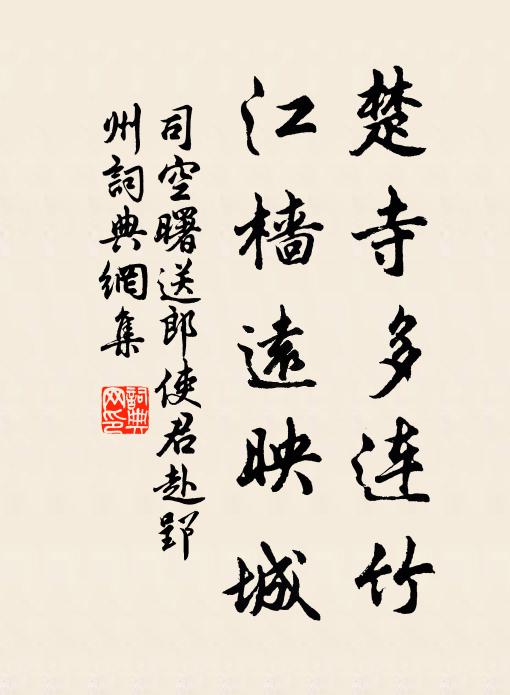 楚寺多连竹
江樯遠映城
司空曙送郎使君赴郢
州詞典網集
詞典
网印